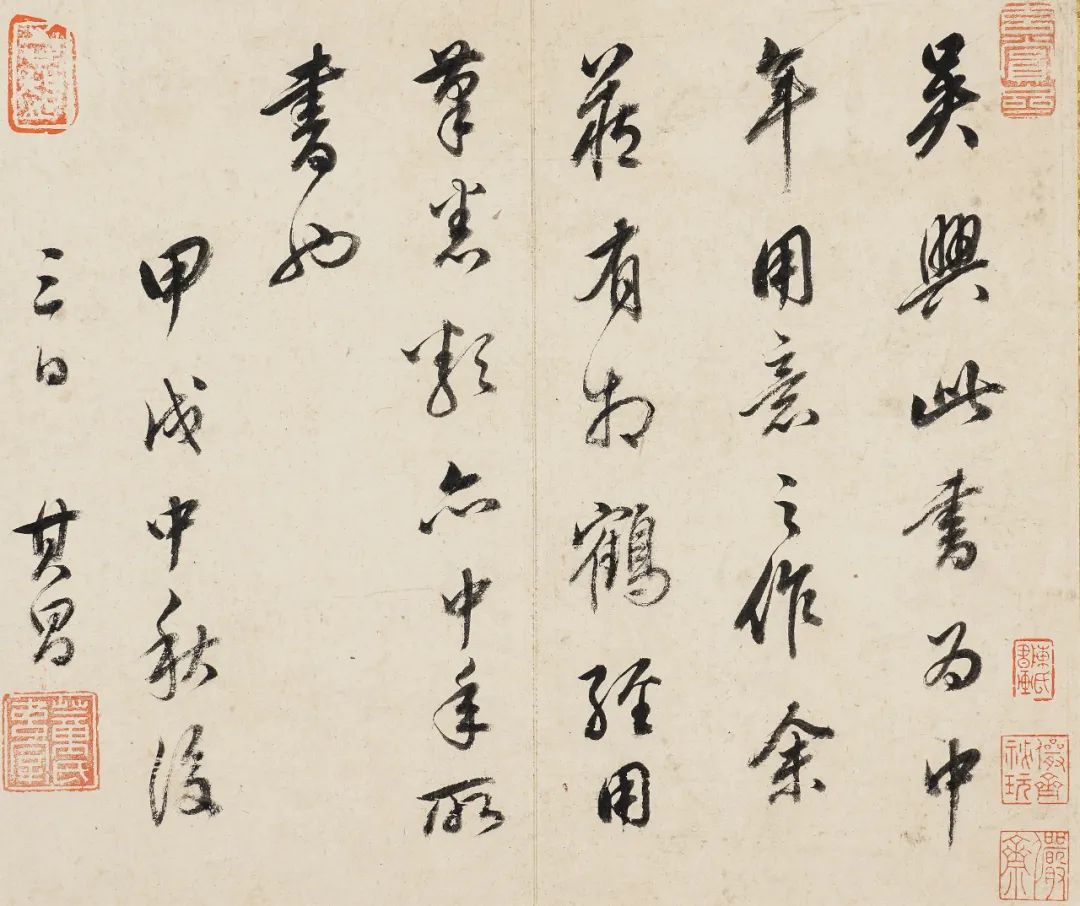 吳興此書為中
年用意之作余
藏有相鶴經用
筆悉類亦中年所
書也
甲戌中秋後
三日 其昌